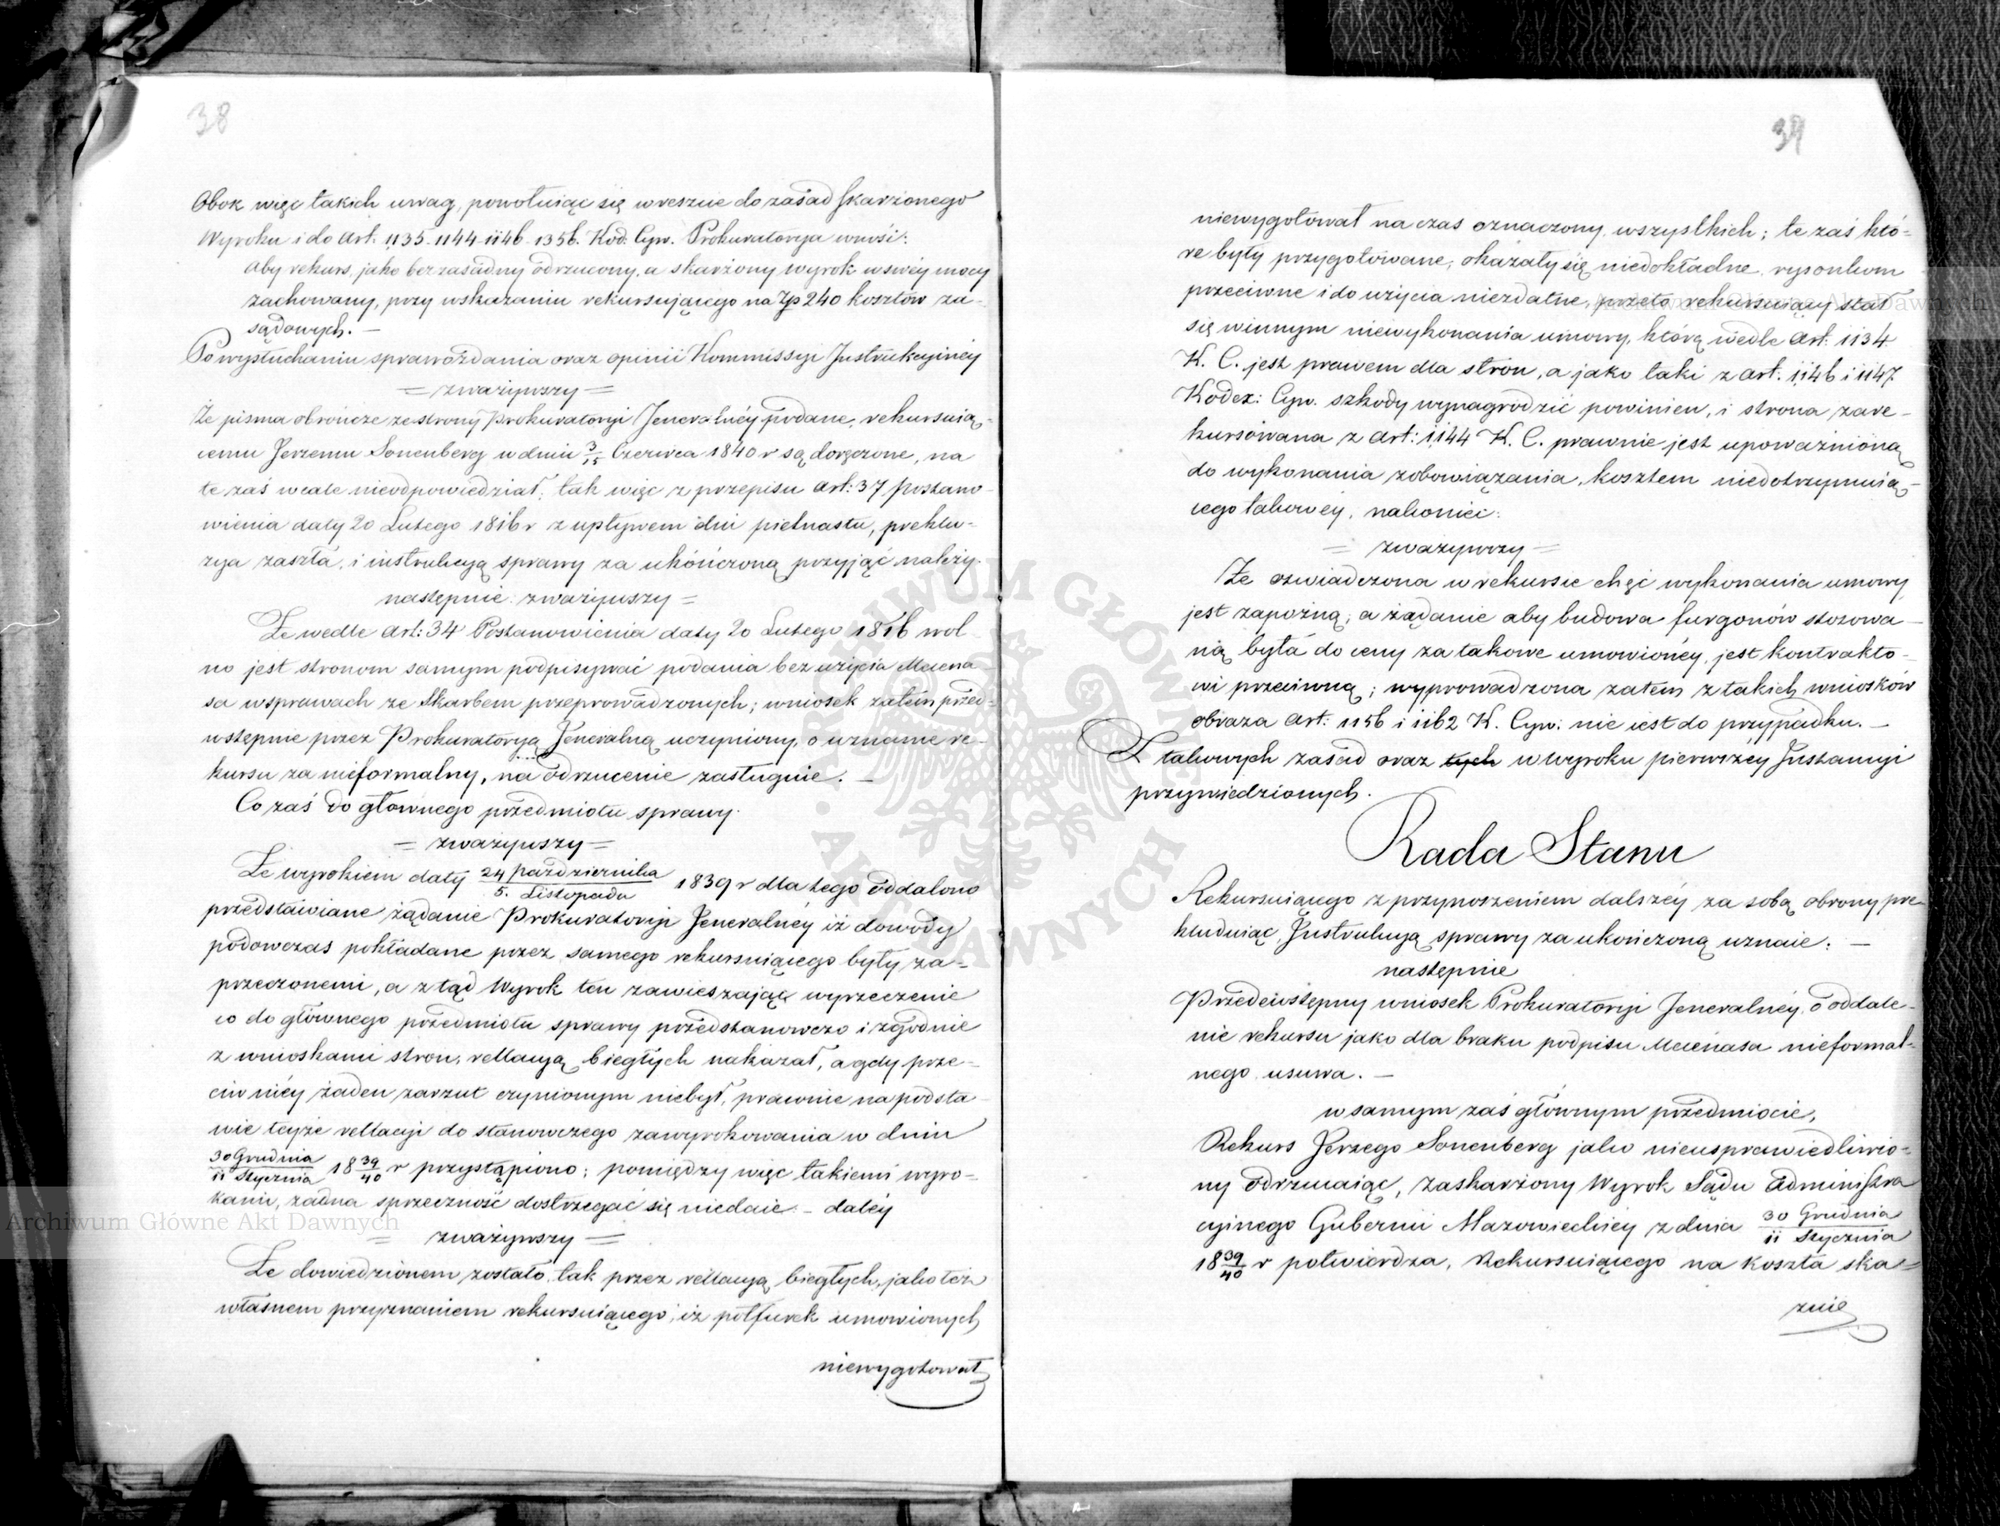 38
Obok więc takich uwag, powołuiąc się wreszcie do zasad skarżonego
Wyroku i do Art. 1135. 1144. 1146. 1356. Kod. Cyw. Prokuratorya wnosi:
aby rekurs, jako bezzasadny odrzucony, a skarżony wyrok w swéy mocy
zachowany, przy wskazaniu rekursującego na Złp 240 kosztów za-
sądowych. —
Po wysłuchaniu sprawozdania oraz opinii Kommissyi Instrukcyinéy
= zważywszy =
Że pisma obrończe ze strony Prokuratoryi Jeneralnéy podane, rekursuią-
cemu Jerzemu Sonenberg w dniu 3/15 Czerwca 1840 r są doręczone, na
te zaś wcale nieodpowiedział; tak więc z przepisu art: 37 postano-
wienia daty 20 Lutego 1816 r z upływem dni piętnastu, preklu-
zya zaszła, i instrukcyą sprawy za ukończoną przyjąć należy.
następnie zważywszy =
Że wedle art: 34 Postanowienia daty 20 Lutego 1816 wol-
no jest stronom samym podpisywać podania bez użycia Mecena-
sa w sprawach ze Skarbem przeprowadzonych; wniosek zatém przed-
wstępnie przez Prokuratoryą Jeneralną uczyniony, o uznanie re-
kursu za nieformalny, na odrzucenie zasługuie. —
Co zaś do głównego przedmiotu sprawy.
= zważywszy =
Że wyrokiem daty 24 Października/5. Listopada 1839 r dla tego oddalono
przedstawiane żądanie Prokuratoryi Jeneralnéy iż dowody
podowczas pokładane przez samego rekursuiącego były za-
przeczonemi, a ztąd Wyrok ten zawieszając wyrzeczenie
co do głównego przedmiotu sprawy przedstanowczo i zgodnie
z wnioskami stron, rellacyą biegłych nakazał, a gdy prze-
ciw niéy żaden zarzut czynionym niebył, prawnie na podsta-
wie teyże rellacyi do stanowczego zawyrokowania w dniu
30 Grudnia/11 Stycznia 18 39/40 r przystąpiono; pomiędzy więc takiemi wyro-
kami, żadna sprzeczność dostrzegać się niedaie. — daléy
= zważywszy =
Że dowiedzionem zostało, tak przez rellacyą biegłych, jako też
własnem przyznaniem rekursuiącego, iż półfurek umowionych
niewygotował
39
niewygotował na czas oznaczony wszystkich; te zaś któ-
re były przygotowane, okazały się niedokładne, rysonkom
przeciwne i do użycia niezdatne, przeto rekursuiący stał
się winnym niewykonania umowy, którą wedle Art: 1134
K. C. jest prawem dla stron, a jako taki z Art: 1146 i 1147.
Kodex: Cyw. szkody wynagrodzić powinien, i strona zare-
kursowana z Art: 1144 K. C. prawnie jest upoważnioną
do wykonania zobowiązania, kosztem niedotrzymuią-
cego takowéy, nakoniec:
= zważywszy =
Że oświadczona w rekursie chęć wykonania umowy
jest zapóźną; a żądanie aby budowa furgonów stosowa-
ną była do ceny za takowe umowionéy, jest kontrakto-
wi przeciwną; wyprowadzona zatem z takich wniosków
obraza Art: 1156 i 1162 K. Cyw: nie iest do przypadku. —
Z takowych zasad oraz tych w wyroku pierwszéy Instancyi
przywiedzionych.
Rada Stanu
Rekursuiącego z przynoszeniem dalszéy za sobą obrony pre-
kluduiąc, Instrukcyą sprawy za ukończoną uznaie: —
następnie
Przedewstępny wniosek Prokuratoryi Jeneralnéy o oddale-
nie rekursu jako dla braku podpisu Mecenasa nieformal-
nego, usuwa. —
w samym zaś głównym przedmiocie,
Rekurs Jerzego Sonenberg jako nieusprawiedliwio-
ny odrzucaiąc, zaskarżony Wyrok Sądu Administra
cyinego Gubernii Mazowieckiéy z dnia 30 Grudnia/11 Stycznia
18 39/40 r potwierdza, Rekursuiącego na koszta ska-
zuie